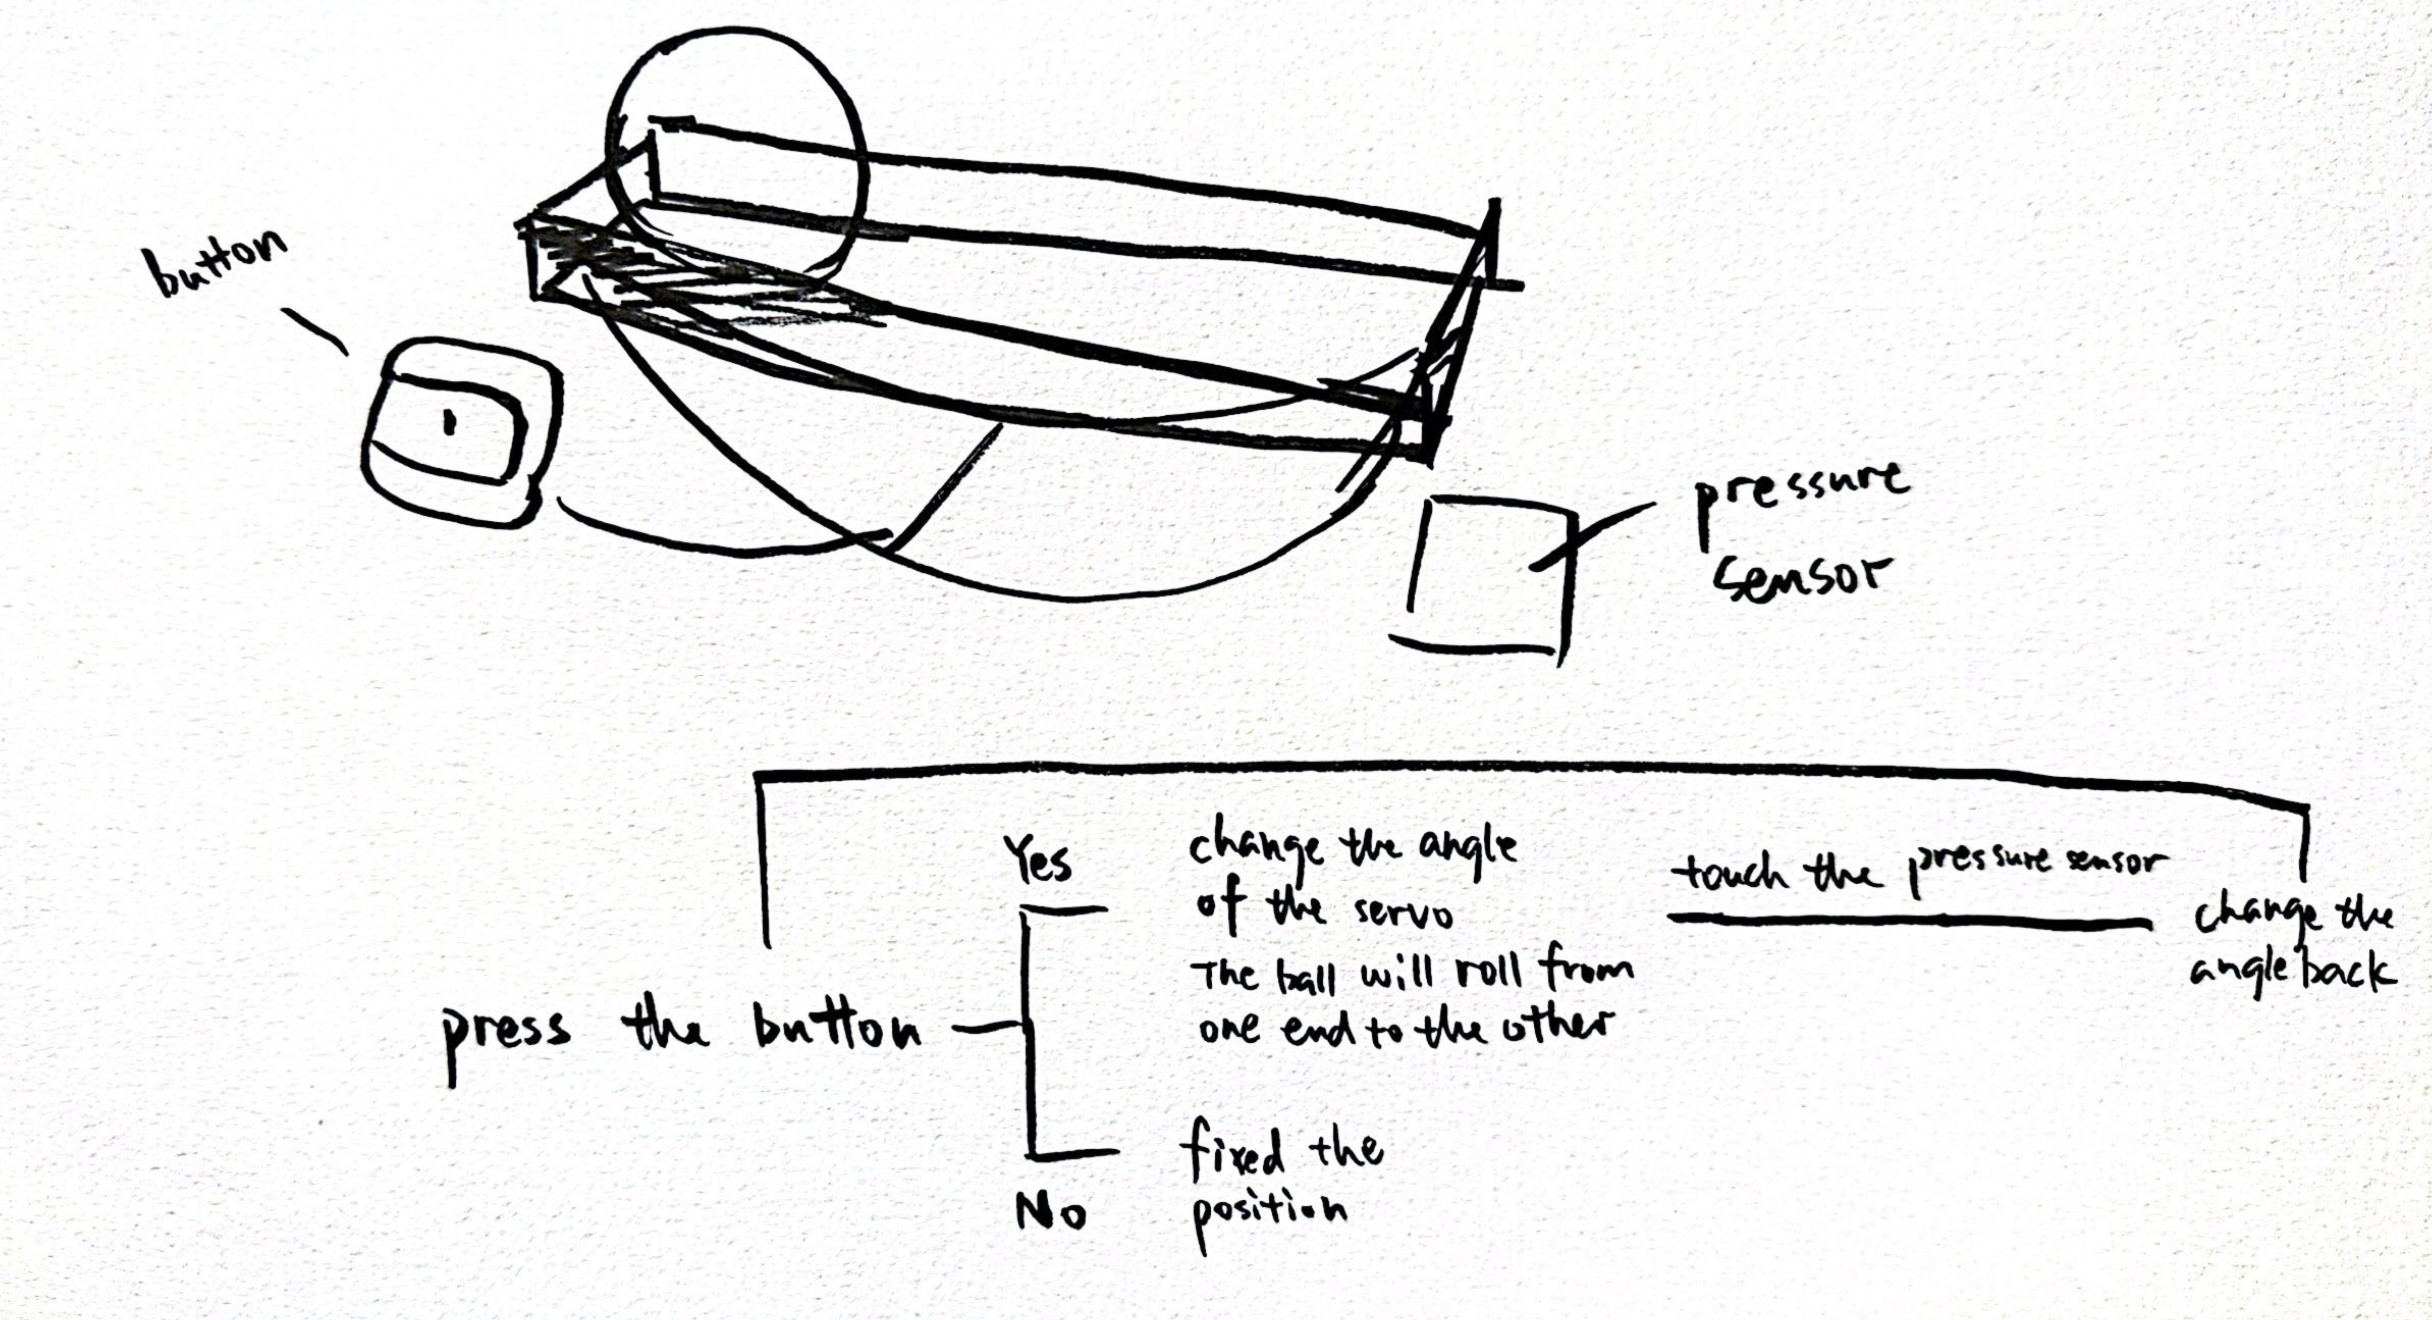 button
pressure
sensor
Yes
change the angle
of the servo
The ball will roll from
one end to the other
touch the pressure sensor
change the
angle back
press the button
fixed the
position
No